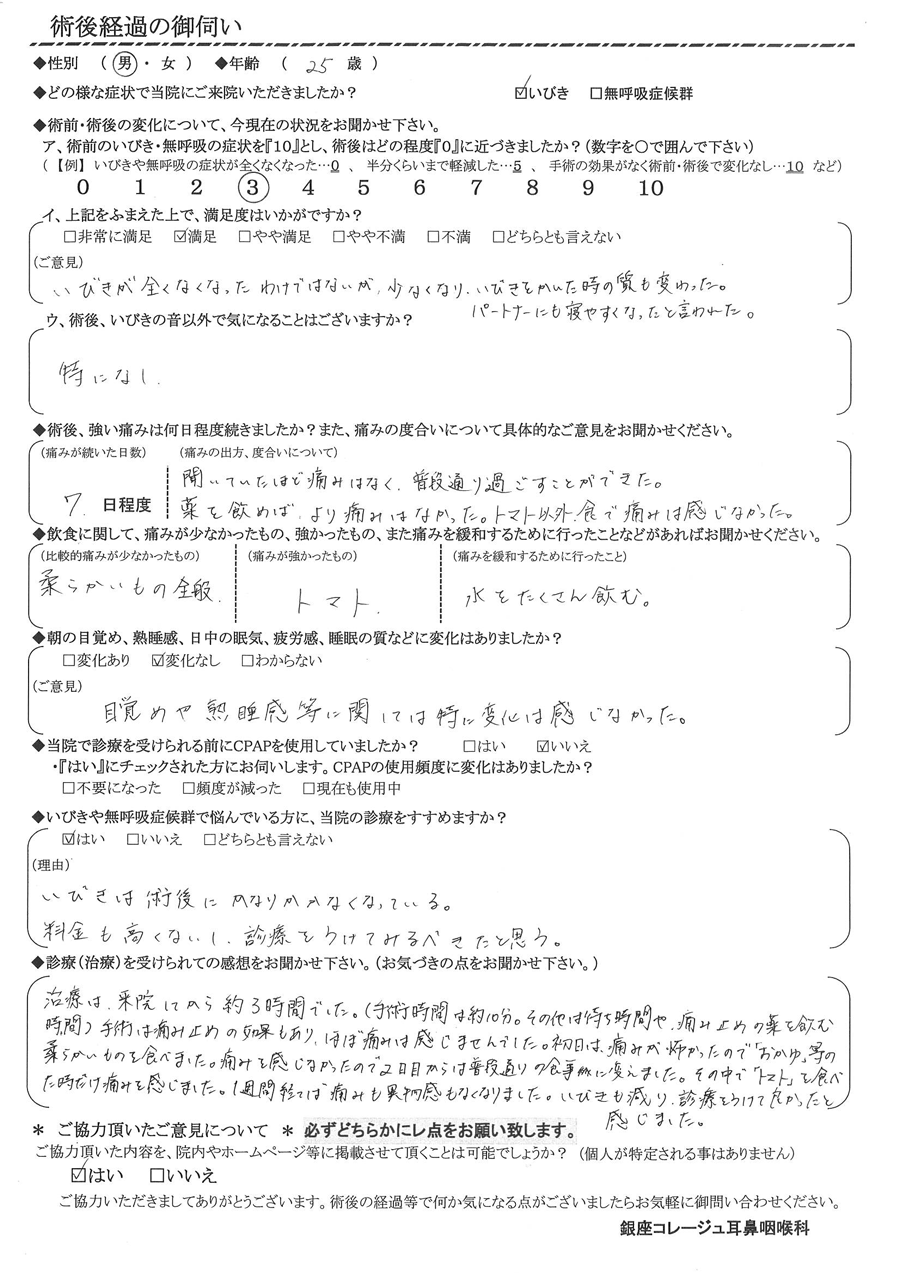 術後経過の御伺い
◆性別 （ 男 ・ 女 ） ◆年齢 （ 25 歳 ）
◆どの様な症状で当院にご来院いただきましたか？ ☑いびき □無呼吸症候群
◆術前・術後の変化について、今現在の状況をお聞かせ下さい。
ア、術前のいびき・無呼吸の症状を『10』とし、術後はどの程度『0』に近づきましたか？（数字を○で囲んで下さい）
（ 【例】 いびきや無呼吸の症状が全くなくなった…0 、 半分くらいまで軽減した…5 、 手術の効果がなく術前・術後で変化なし…10 など）
0 1 2 3 4 5 6 7 8 9 10
イ、上記をふまえた上で、満足度はいかがですか？
□非常に満足 ☑満足 □やや満足 □やや不満 □不満 □どちらとも言えない
（ご意見）
いびきが全くなくなったわけではないが、少なくなり、いびきをかいた時の質も変わった。
パートナーにも寝やすくなったと言われた。
ウ、術後、いびきの音以外で気になることはございますか？
特になし。
◆術後、強い痛みは何日程度続きましたか？また、痛みの度合いについて具体的なご意見をお聞かせください。
（痛みが続いた日数） （痛みの出方、度合いについて）
聞いていたほど痛みはなく、普段通り過ごすことができた。
7 日程度
薬を飲めば、より痛みはなかった。トマト以外、食で痛みは感じなかった。
◆飲食に関して、痛みが少なかったもの、強かったもの、また痛みを緩和するために行ったことなどがあればお聞かせください。
（比較的痛みが少なかったもの） （痛みが強かったもの） （痛みを緩和するために行ったこと）
柔らかいもの全般 トマト。 水をたくさん飲む。
◆朝の目覚め、熟睡感、日中の眠気、疲労感、睡眠の質などに変化はありましたか？
□変化あり ☑変化なし □わからない
（ご意見）
目覚めや熟睡感等に関しては特に変化は感じなかった。
◆当院で診療を受けられる前にCPAPを使用していましたか？ □はい ☑いいえ
・『はい』にチェックされた方にお伺いします。CPAPの使用頻度に変化はありましたか？
□不要になった □頻度が減った □現在も使用中
◆いびきや無呼吸症候群で悩んでいる方に、当院の診療をすすめますか？
☑はい □いいえ □どちらとも言えない
（理由）
いびきは術後にかなりかかなくなっている。
料金も高くないし、診療をうけてみるべきだと思う。
◆診療（治療）を受けられての感想をお聞かせ下さい。（お気づきの点をお聞かせ下さい。）
治療は、来院してから約3時間でした。（手術時間は約10分。その他は待ち時間や、痛み止めの薬を飲む
時間）手術は痛み止めの効果もあり、ほぼ痛みは感じませんでした。初日は、痛みが怖かったので「おかゆ」等の
柔らかいものを食べました。痛みを感じなかったので2日目からは普段通りの食事に変えました。その中で「トマト」を食べ
た時だけ痛みを感じました。1週間経てば痛みも異物感もなくなりました。いびきも減り、診療をうけて良かったと
感じました。
＊ ご協力頂いたご意見について ＊ 必ずどちらかにレ点をお願い致します。
ご協力頂いた内容を、院内やホームページ等に掲載させて頂くことは可能でしょうか？ （個人が特定される事はありません）
☑はい □いいえ
ご協力いただきましてありがとうございます。術後の経過等で何か気になる点がございましたらお気軽に御問い合わせください。
銀座コレージュ耳鼻咽喉科